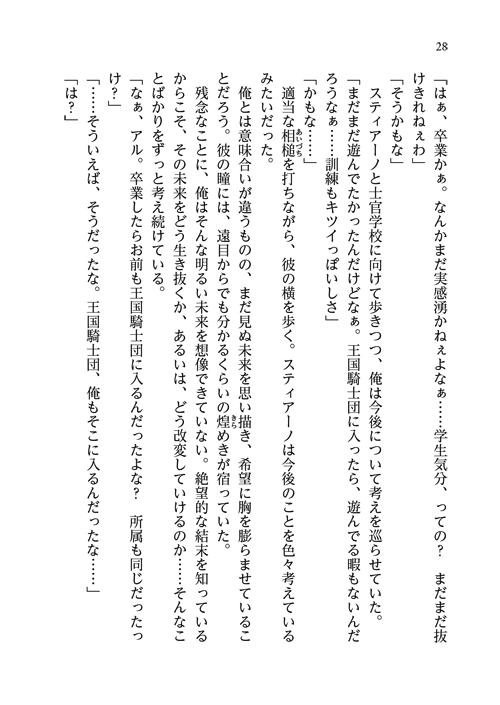 28
「はぁ、卒業かぁ。なんかまだ実感湧かねぇよなぁ……学生気分、っての？　まだまだ抜
けきれねぇわ」
「そうかもな」
　スティアーノと士官学校に向けて歩きつつ、俺は今後について考えを巡らせていた。
「まだまだ遊んでたかったんだけどなぁ。王国騎士団に入ったら、遊んでる暇もないんだ
ろうなぁ……訓練もキツイっぽいしさ」
「かもな……」
　適当な相槌を打ちながら、彼の横を歩く。スティアーノは今後のことを色々考えている
みたいだった。
　俺とは意味合いが違うものの、まだ見ぬ未来を思い描き、希望に胸を膨らませているこ
とだろう。彼の瞳には、遠目からでも分かるくらいの煌めきが宿っていた。
　残念なことに、俺はそんな明るい未来を想像できていない。絶望的な結末を知っている
からこそ、その未来をどう生き抜くか、あるいは、どう改変していけるのか……そんなこ
とばかりをずっと考え続けている。
「なぁ、アル。卒業したらお前も王国騎士団に入るんだったよな？　所属も同じだったっ
け？」
「……そういえば、そうだったな。王国騎士団、俺もそこに入るんだったな……」
「は？」
あいづち
きら